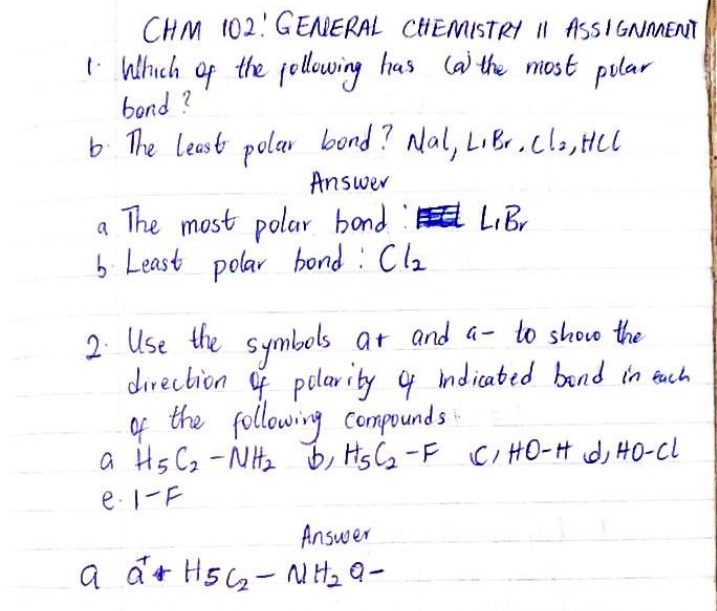 CHM 102: GENERAL CHEMISTRY II ASSIGNMENT
1. Which of the following has (a) the most polar
bond?
b. The least polar bond? NaI, LiBr, Cl2, HCl
Answer
a The most polar bond: LiBr
b. Least polar bond: Cl2
2. Use the symbols a+ and a- to show the
direction of polarity of indicated bond in each
of the following compounds:
a H5C2-NH2 b, H5C2-F c, HO-H d, HO-Cl
e. I-F
Answer
a a+ H5C2-NH2 a-